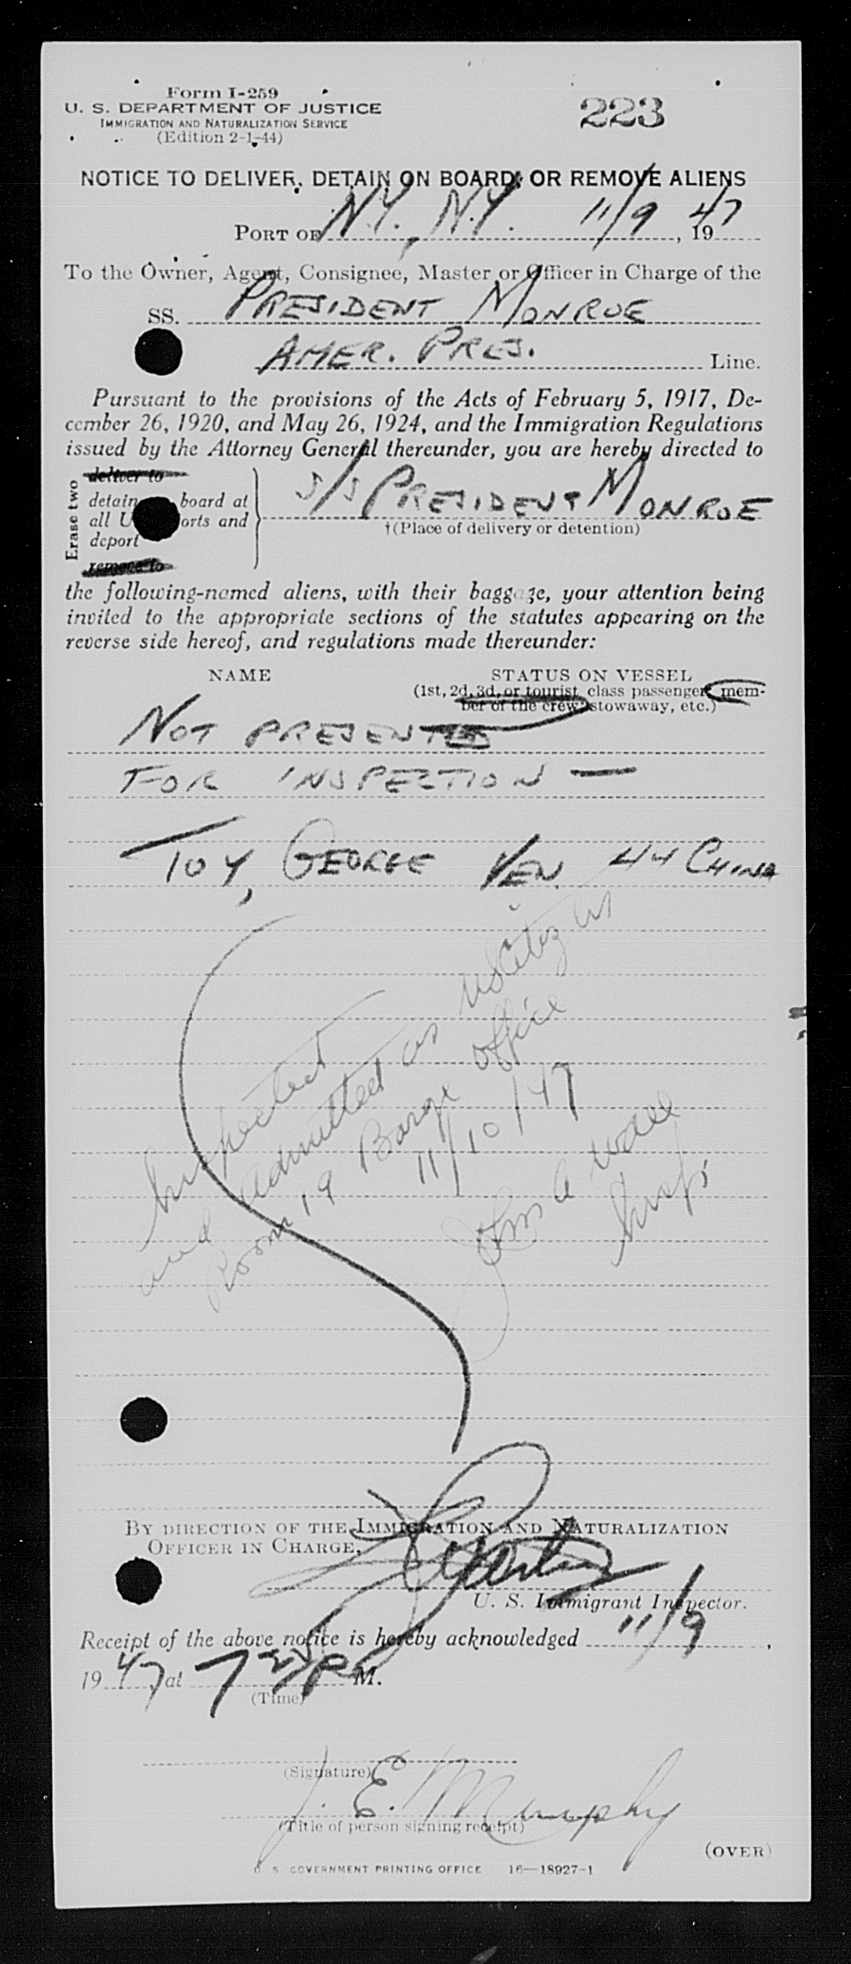 Form I-259
U. S. DEPARTMENT OF JUSTICE
IMMIGRATION AND NATURALIZATION SERVICE
(Edition 2-1-44)
223
NOTICE TO DELIVER, DETAIN ON BOARD, OR REMOVE ALIENS
PORT OF N.Y., N.Y. 11/9, 1947
To the Owner, Agent, Consignee, Master or Officer in Charge of the
SS. PRESIDENT MONROE
AMER. PRES. Line.
Pursuant to the provisions of the Acts of February 5, 1917, De-
cember 26, 1920, and May 26, 1924, and the Immigration Regulations
issued by the Attorney General thereunder, you are hereby directed to
Erase two
deliver to
detain board at
all U orts and
deport
remove to
S/S PRESIDENT MONROE
†(Place of delivery or detention)
the following-named aliens, with their baggage, your attention being
invited to the appropriate sections of the statutes appearing on the
reverse side hereof, and regulations made thereunder:
NAME
STATUS ON VESSEL
(1st, 2d, 3d, or tourist class passenger, mem-
ber of the crew, stowaway, etc.)
NOT PRESENTED
FOR INSPECTION —
TOY, GEORGE YEN 44 CHINA
Inspected
and admitted as US Citizen in
Room 19 Barge office
11/10/47
John A
Insp.
BY DIRECTION OF THE IMMIGRATION AND NATURALIZATION
OFFICER IN CHARGE,
U. S. Immigrant Inspector.
Receipt of the above notice is hereby acknowledged 11/9,
1947 at 7 P M.
(Time)
(Signature)
J. E. Murphy
(Title of person signing receipt)
(OVER)
U. S. GOVERNMENT PRINTING OFFICE 16—18927-1